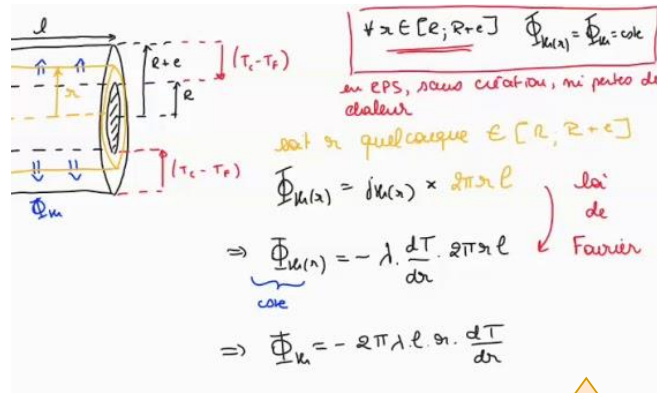 l
R+e
(Tc-TF)
r
R
(Tc-TF)
Φth
∀ r ∈ [R; R+e] Φth(r) = Φth = cste
en EPS, sans création, ni pertes de
chaleur
soit r quelconque ∈ [R, R+e]
Φth(r) = jth(r) × 2πrl
loi
de
Fourier
⇒ Φth(r) = - λ. dT/dr . 2πrl
cste
⇒ Φth = - 2πλ.l.r. dT/dr